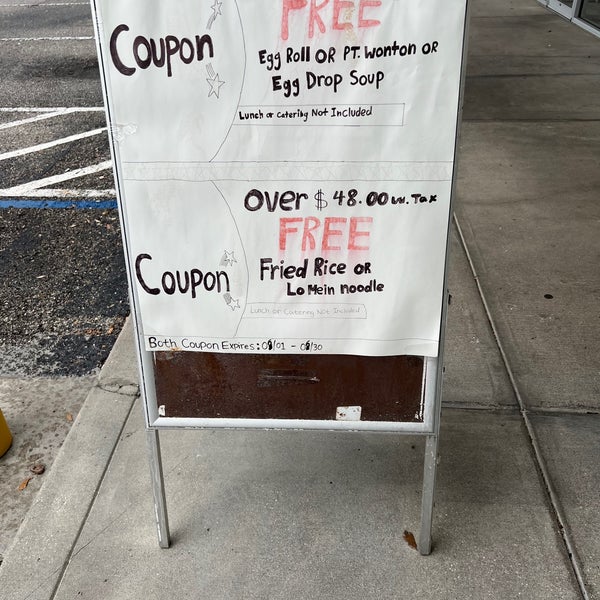 FREE
Coupon
Egg Roll OR PT. Wonton OR
Egg Drop Soup
Lunch or Catering Not Included
Over $48.00 w. Tax
FREE
Coupon
Fried Rice OR
Lo Mein noodle
Lunch or Catering Not Included
Both Coupon Expires: